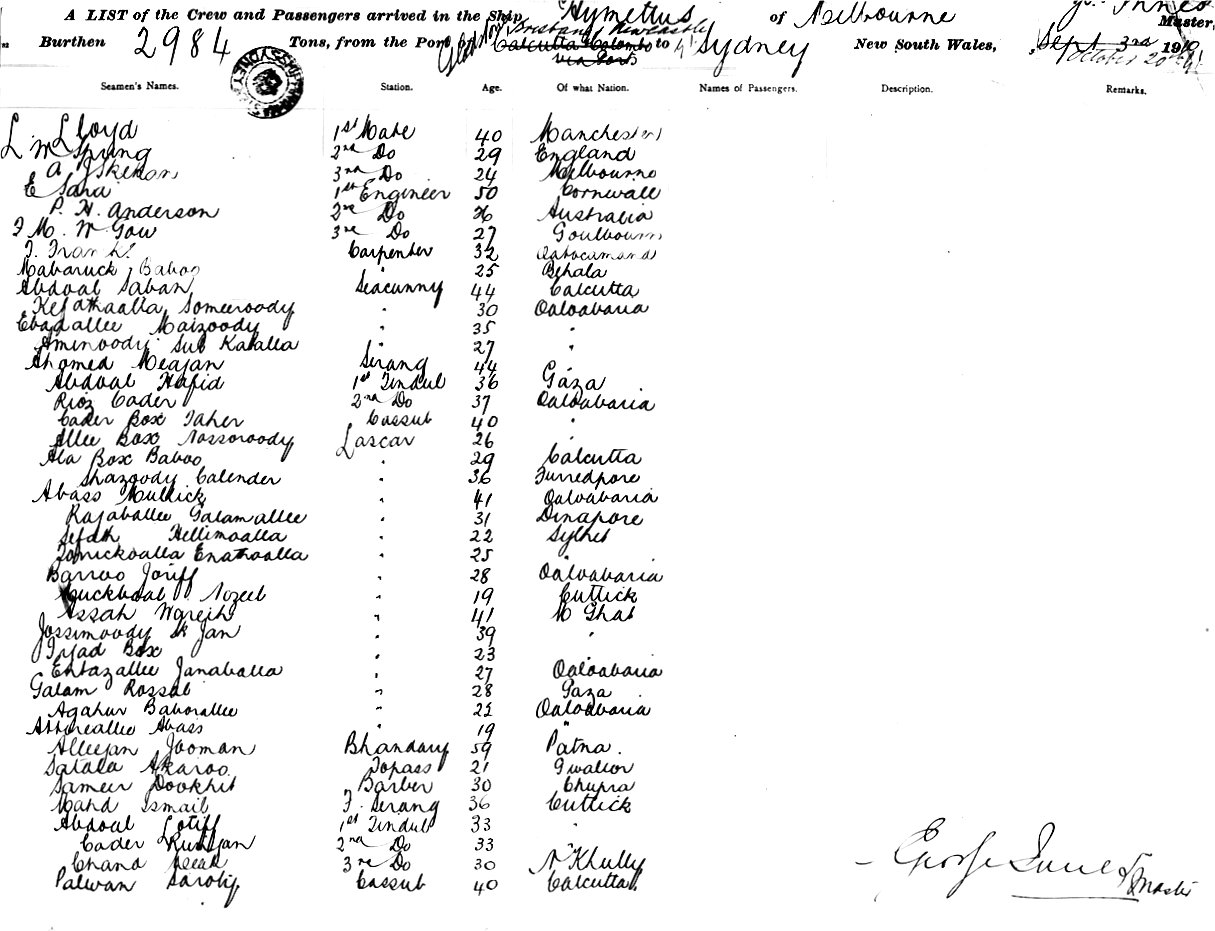 A LIST of the Crew and Passengers arrived in the Ship Hymettus of Melbourne Innes Master,
Burthen 2984 Tons, from the Port Calcutta Colombo via Ports Brisbane Newcastle to Sydney New South Wales, Sept 3rd 1910 October 20th
Seamen's Names. Station. Age. Of what Nation. Names of Passengers. Description. Remarks.
L. Lloyd 1st Mate 40 Manchester
L M Spring 2nd Do 29 England
A 3rd Do 24 Melbourne
E Sara 1st Engineer 50 Cornwall
P. H. Anderson 2nd Do 26 Australia
F M. McGaw 3rd Do 27 Goulbourn
T. Frank Carpenter 32
Mabaruck Baboo 25 Behala
Abdoal Saban Seacunny 44 Calcutta
Kefathaalla Someeroody " 30 Ooloobaria
Ebadallee Maizoody 35 "
Aminoody Sub Kalalla 27 "
Ahomed Meajan Serang 44
Abdoal Hafid 1st Tindul 36 Gaza
Rioz Cader 2nd Do 37 Ooloobaria
Cader Box Taher Cassub 40 "
Allee Box Nossoroody Lascar 26 "
Ala Box Baboo " 29 Calcutta
Shazoody Calender " 36 Furredpore
Abass Mullick " 41 Ooloobaria
Rajaballee Galamallee " 31 Dinapore
Sefath Hellimoalla " 22 Sylhet
Tomickoalla Enathoalla " 25
Barroo Joriff " 28 Ooloobaria
Buckbool Nozeeb " 19 Cuttick
Assah Wgreih " 41 N Ghat
Jossimoody Sk Jan " 39 "
Irjad Box " 23
Ehtazallee Janaballa " 27 Ooloobaria
Galam Rossal " 28 Gaza
Agahur Baborallee " 22 Ooloobaria
Abbreallee Abass " 19 "
Alleejan Jooman Bhandary 59 Patna.
Satala Akaroo Topass 21 Gwalior
Sameer Dookhit Barber 30 Chupra
Mahd Ismail F. Serang 36 Cuttick
Abdoal Lotiff 1st Tindul 33 "
Cader 2nd Do 33
Chand 3rd Do 30 N'Khully
Palwan Saroty Cassub 40 Calcutta
George Innes Master